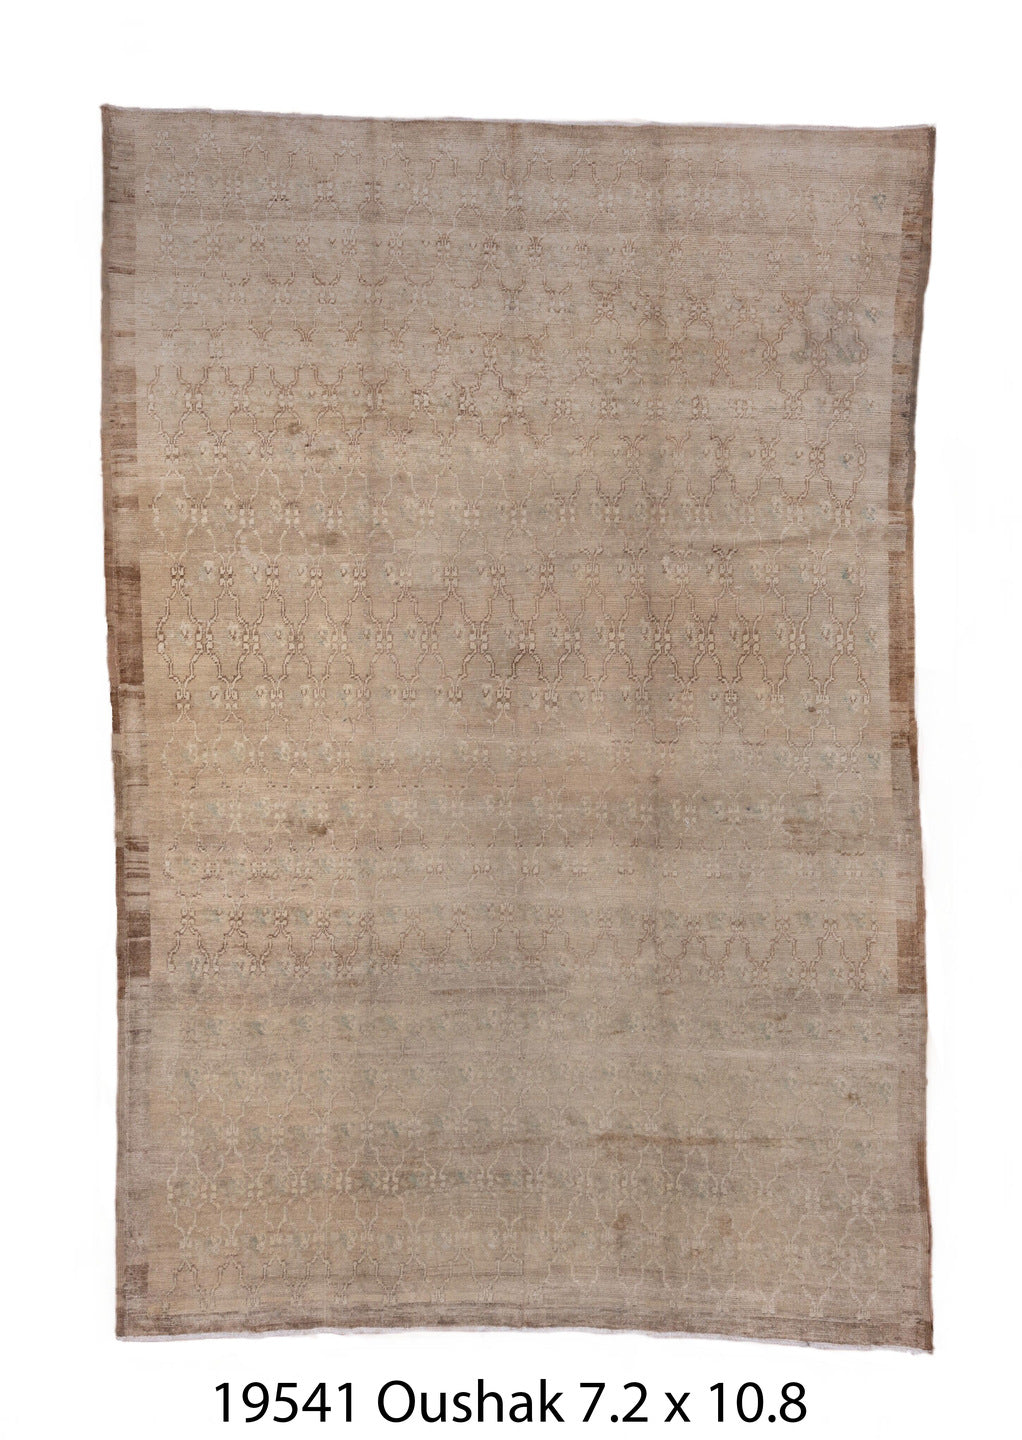 19541 Oushak 7.2 x 10.8